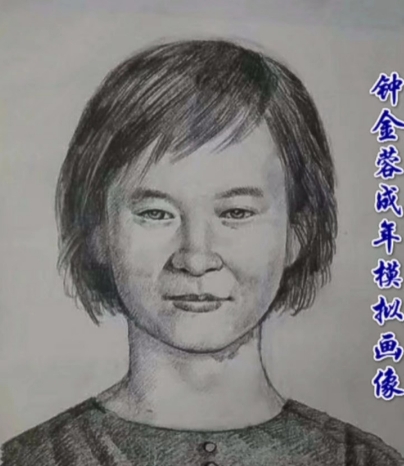 钟金蓉成年模拟画像